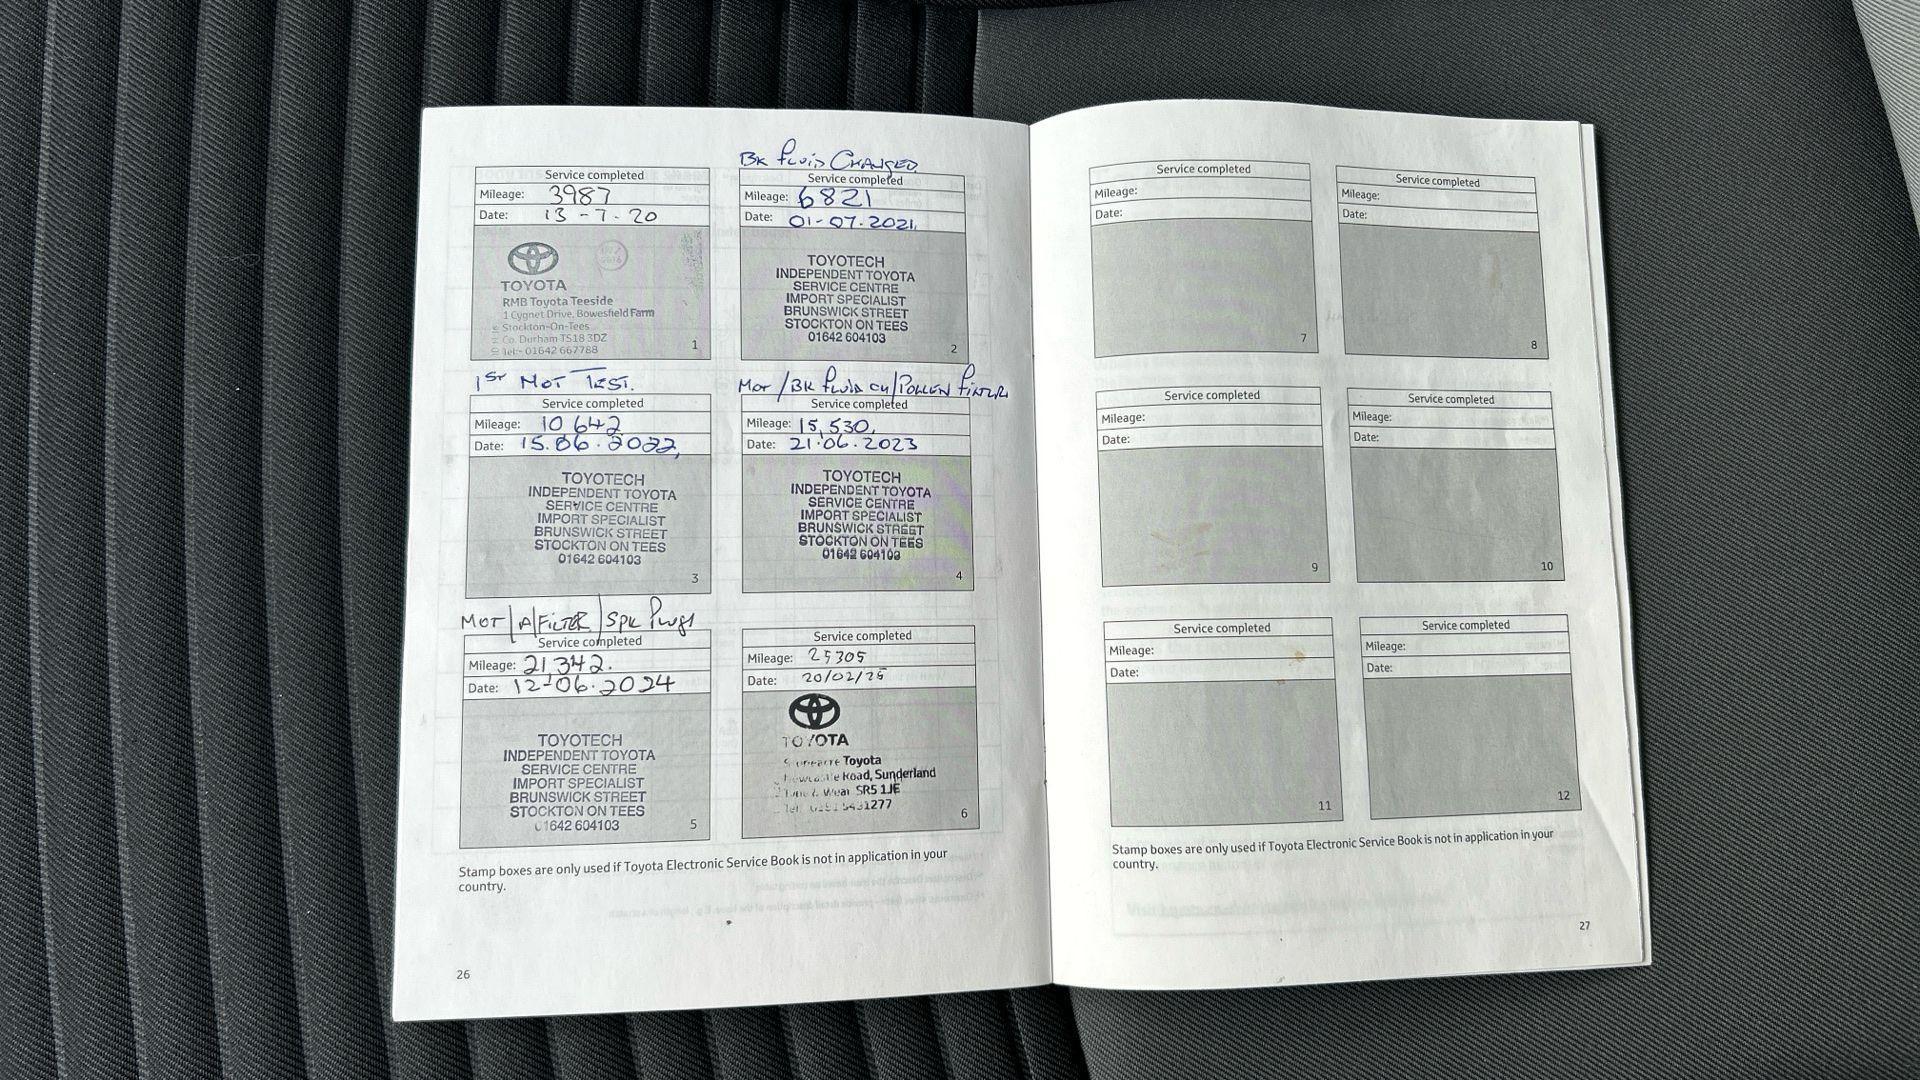 Service completed
Mileage: 3987
Date: 13-7-20
TOYOTA
RMB Toyota Teeside
1 Cygnet Drive, Bowesfield Farm
Stockton-On-Tees
Co. Durham TS18 3DZ
Tel:- 01642 667788
1
BK Fluid CHANGED
Service completed
Mileage: 6821
Date: 01-07.2021
TOYOTECH
INDEPENDENT TOYOTA
SERVICE CENTRE
IMPORT SPECIALIST
BRUNSWICK STREET
STOCKTON ON TEES
01642 604103
2
1ST MOT TEST.
Service completed
Mileage: 10642
Date: 15.06.2022
TOYOTECH
INDEPENDENT TOYOTA
SERVICE CENTRE
IMPORT SPECIALIST
BRUNSWICK STREET
STOCKTON ON TEES
01642 604103
3
MOT/BK Fluid CH/POLLEN FILTER
Service completed
Mileage: 15,530.
Date: 21.06.2023
TOYOTECH
INDEPENDENT TOYOTA
SERVICE CENTRE
IMPORT SPECIALIST
BRUNSWICK STREET
STOCKTON ON TEES
01642 604103
4
MOT/A/FILTER/SPK Plugs
Service completed
Mileage: 21,342.
Date: 12-06.2024
TOYOTECH
INDEPENDENT TOYOTA
SERVICE CENTRE
IMPORT SPECIALIST
BRUNSWICK STREET
STOCKTON ON TEES
01642 604103
5
Service completed
Mileage: 25305
Date: 20/02/25
TOYOTA
Toyota
Road, Sunderland
Wear SR5 1JE
6
Stamp boxes are only used if Toyota Electronic Service Book is not in application in your
country.
26
Service completed
Mileage:
Date:
7
Service completed
Mileage:
Date:
8
Service completed
Mileage:
Date:
9
Service completed
Mileage:
Date:
10
Service completed
Mileage:
Date:
11
Service completed
Mileage:
Date:
12
Stamp boxes are only used if Toyota Electronic Service Book is not in application in your
country.
27